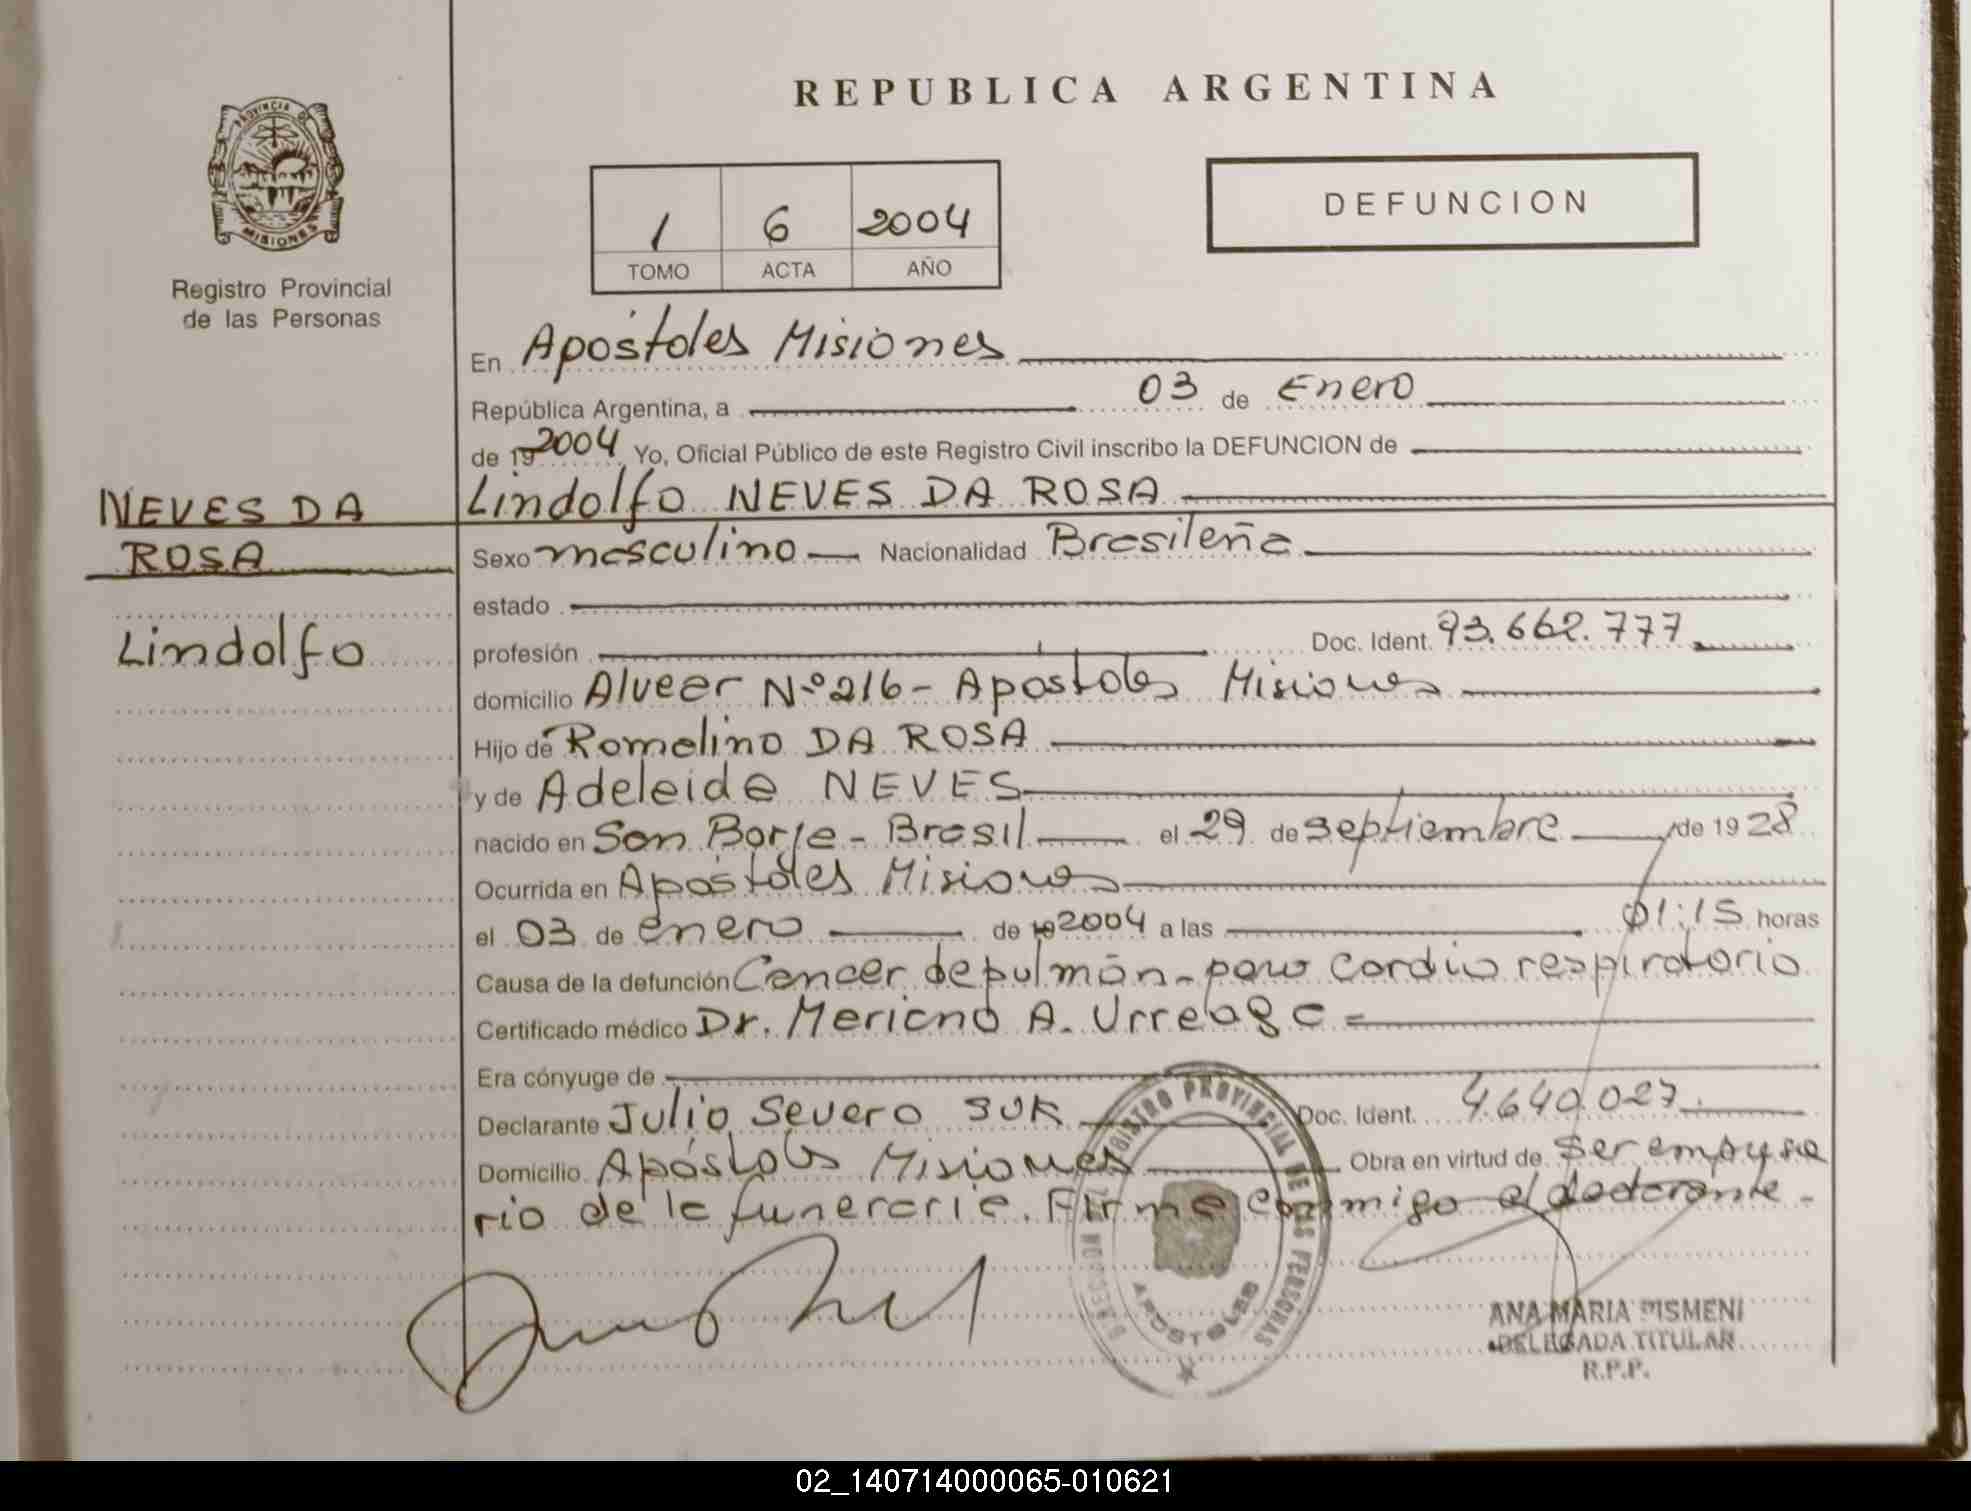 REPUBLICA ARGENTINA
PROVINCIA DE
MISIONES
Registro Provincial
de las Personas
1 6 2004
TOMO ACTA AÑO
DEFUNCION
En Apóstoles Misiones
República Argentina, a 03 de Enero
de 19 2004 Yo, Oficial Público de este Registro Civil inscribo la DEFUNCION de
NEVES DA
ROSA
Lindolfo
Lindolfo NEVES DA ROSA
Sexo masculino Nacionalidad Brasileña
estado
profesión Doc. Ident. 93.662.777
domicilio Alvear Nº 216 - Apóstoles Misiones
Hijo de Romalino DA ROSA
y de Adeleida NEVES
nacido en San Borja - Brasil el 29 de septiembre de 19 28
Ocurrida en Apóstoles Misiones
el 03 de enero de 19 2004 a las 01:15 horas
Causa de la defunción Cancer de pulmón - paro cardio respiratorio
Certificado médico Dr. Mariano A. Urreaga =
Era cónyuge de
Declarante Julio Severo SUK Doc. Ident. 4.640.027
Domicilio Apóstoles Misiones Obra en virtud de ser empresa
rio de la funeraria. Firma conmigo el declarante -
REGISTRO PROVINCIAL DE LAS PERSONAS
APOSTOLES
ANA MARIA PISMENI
DELEGADA TITULAR
R.P.P.
02_140714000065-010621